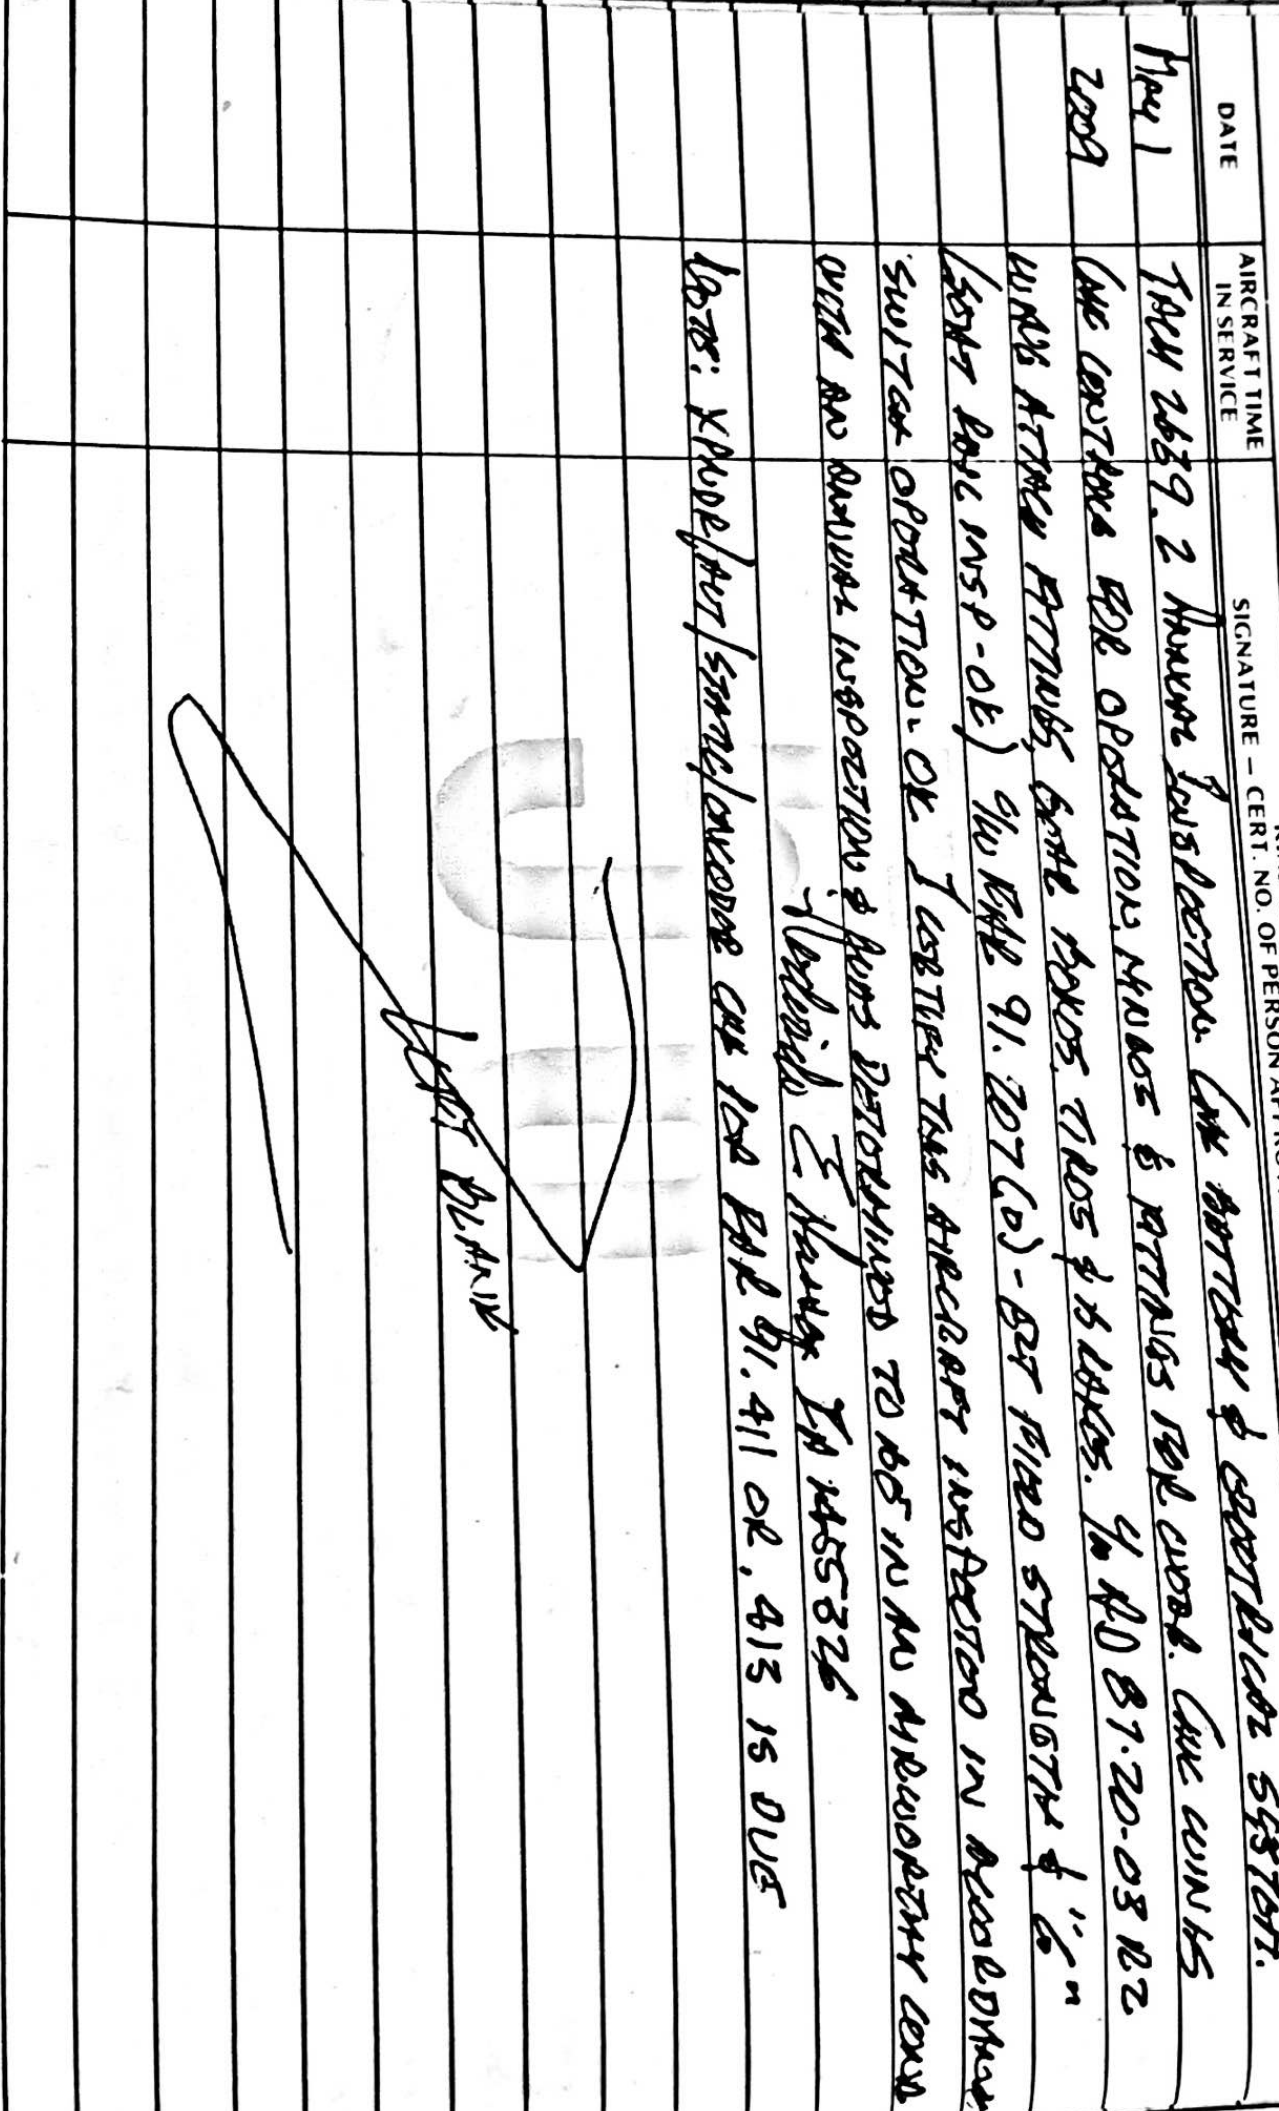 DATE
AIRCRAFT TIME
IN SERVICE
SIGNATURE – CERT. NO. OF PERSON
May 1
2009
TACH 2639.2 ANNUAL INSPECTION. CHK BATTERY & ELECTRICAL SYSTEM.
CHK CONTROLS FOR OPERATION, HINGES & FITTINGS FOR COND. CHK WINGS
WING ATTACH FITTINGS, GEAR BOXES, TIRES & BRAKES. C/W AD 87-20-03 R2
(SEAT RAIL INSP-OK) C/W FAR 91.207(D) - ELT FIELD STRENGTH & "G"
SWITCH OPERATION-OK. I CERTIFY THIS AIRCRAFT INSPECTED IN ACCORDANCE
WITH AN ANNUAL INSPECTION & WAS DETERMINED TO BE IN AN AIRWORTHY COND
IA
NOTE: XPNDR/ALT/STATIC/ENCODER CHK PER FAR 91.411 OR .413 IS DUE
LEFT BLANK